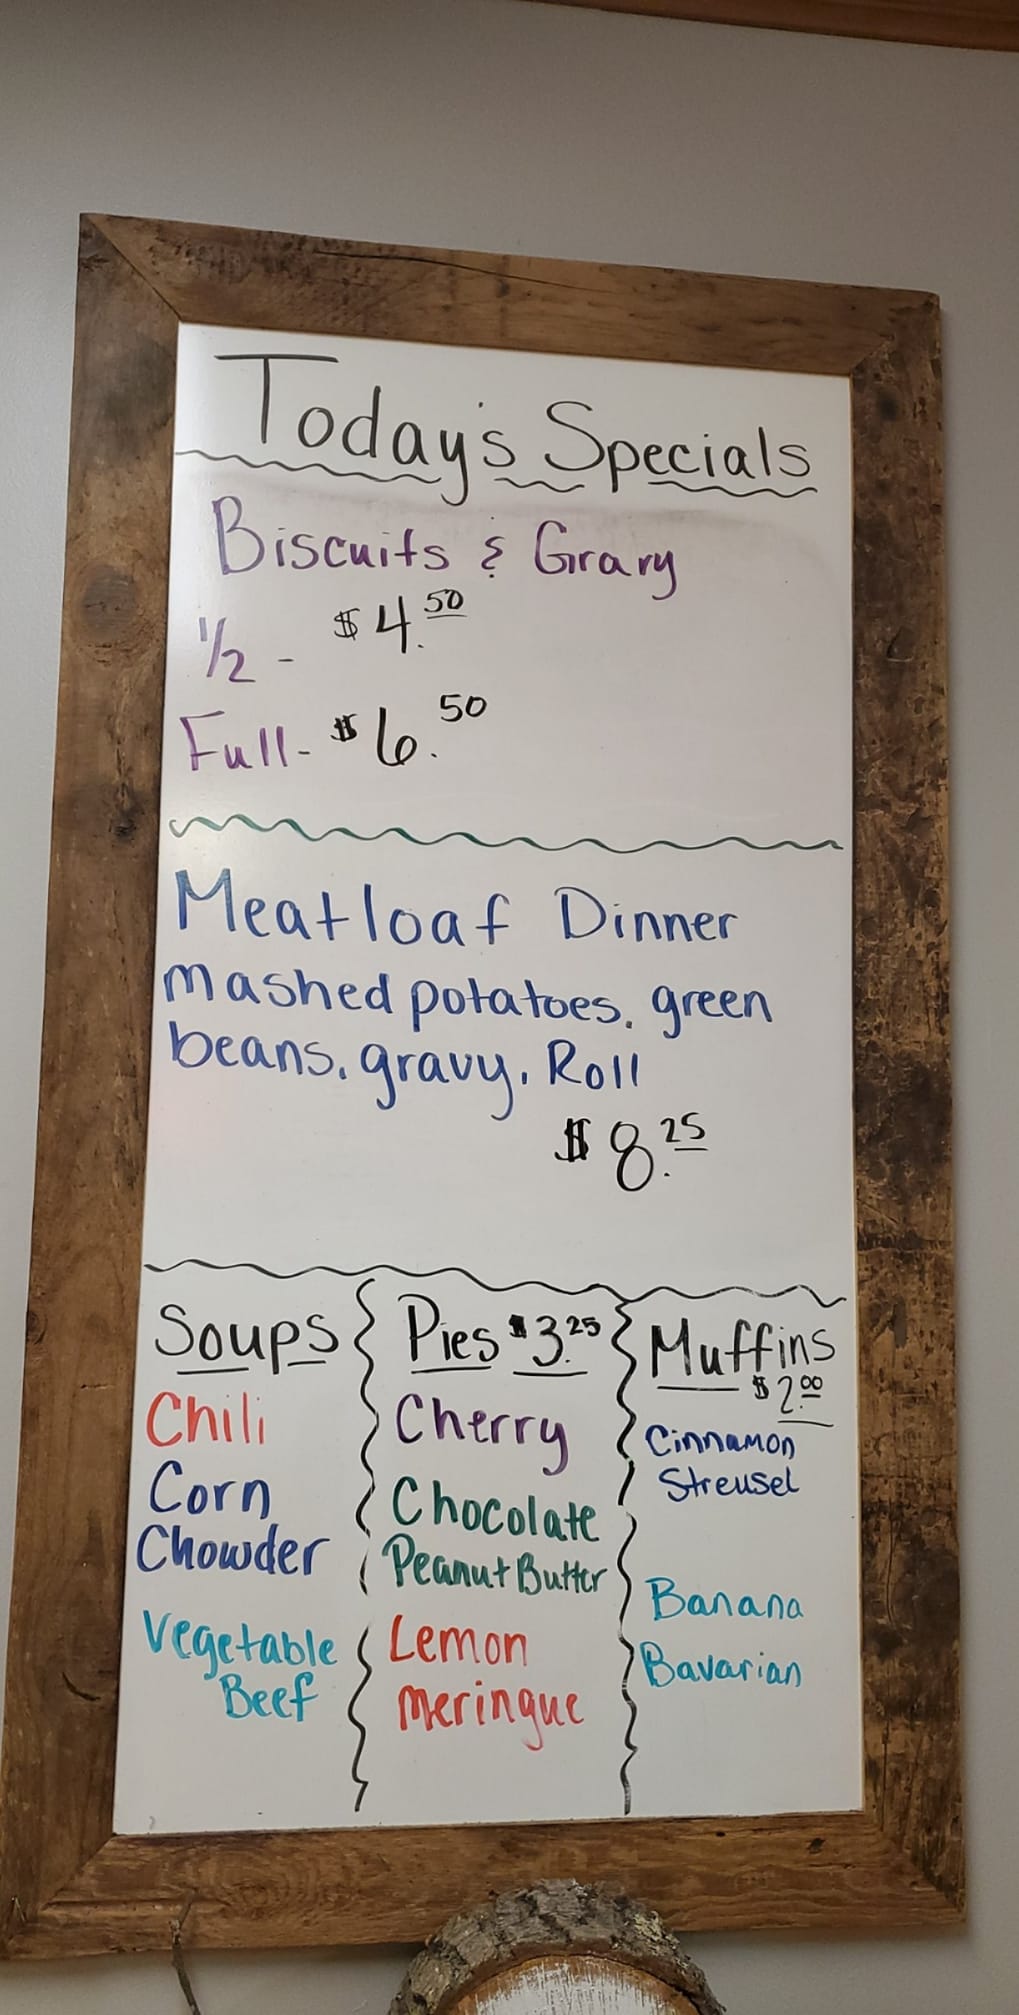 Today's Specials
Biscuits & Gravy
1/2 - $4.50
Full - $6.50
Meatloaf Dinner
mashed potatoes, green
beans, gravy, Roll
$8.25
Soups
Chili
Corn
Chowder
Vegetable
Beef
Pies $3.25
Cherry
Chocolate
Peanut Butter
Lemon
Meringue
Muffins
$2.00
Cinnamon
Streusel
Banana
Bavarian